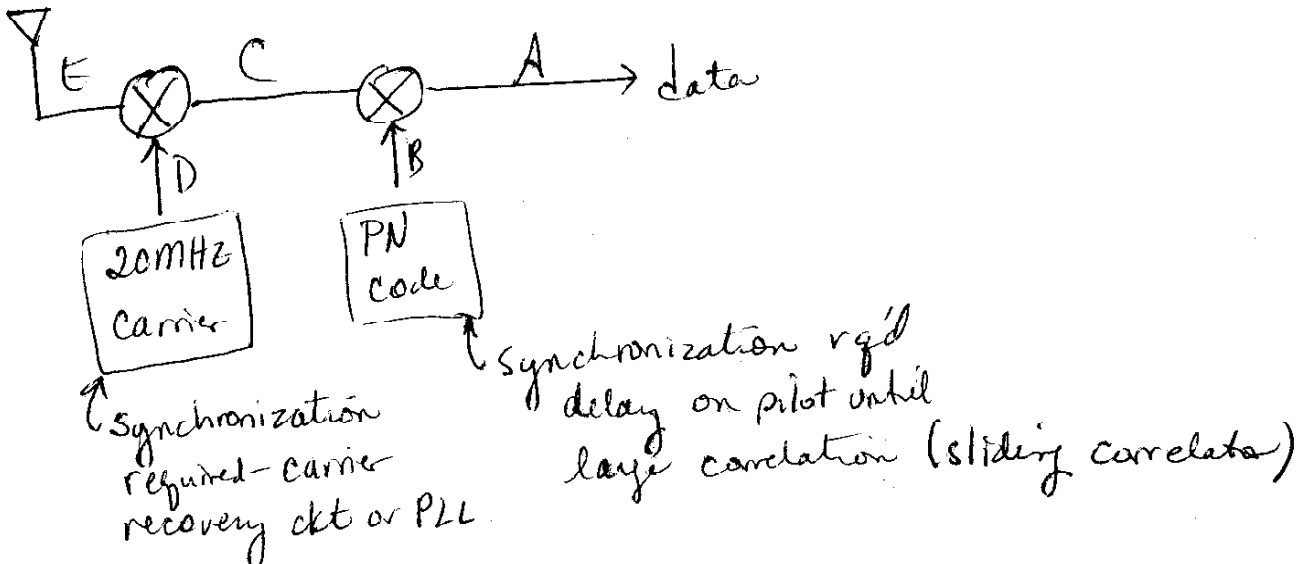 E
C
A
data
D
B
20MHz
Carrier
PN
Code
synchronization
required-carrier
recovery ckt or PLL
synchronization rq'd
delay on pilot until
large correlation (sliding correlator)